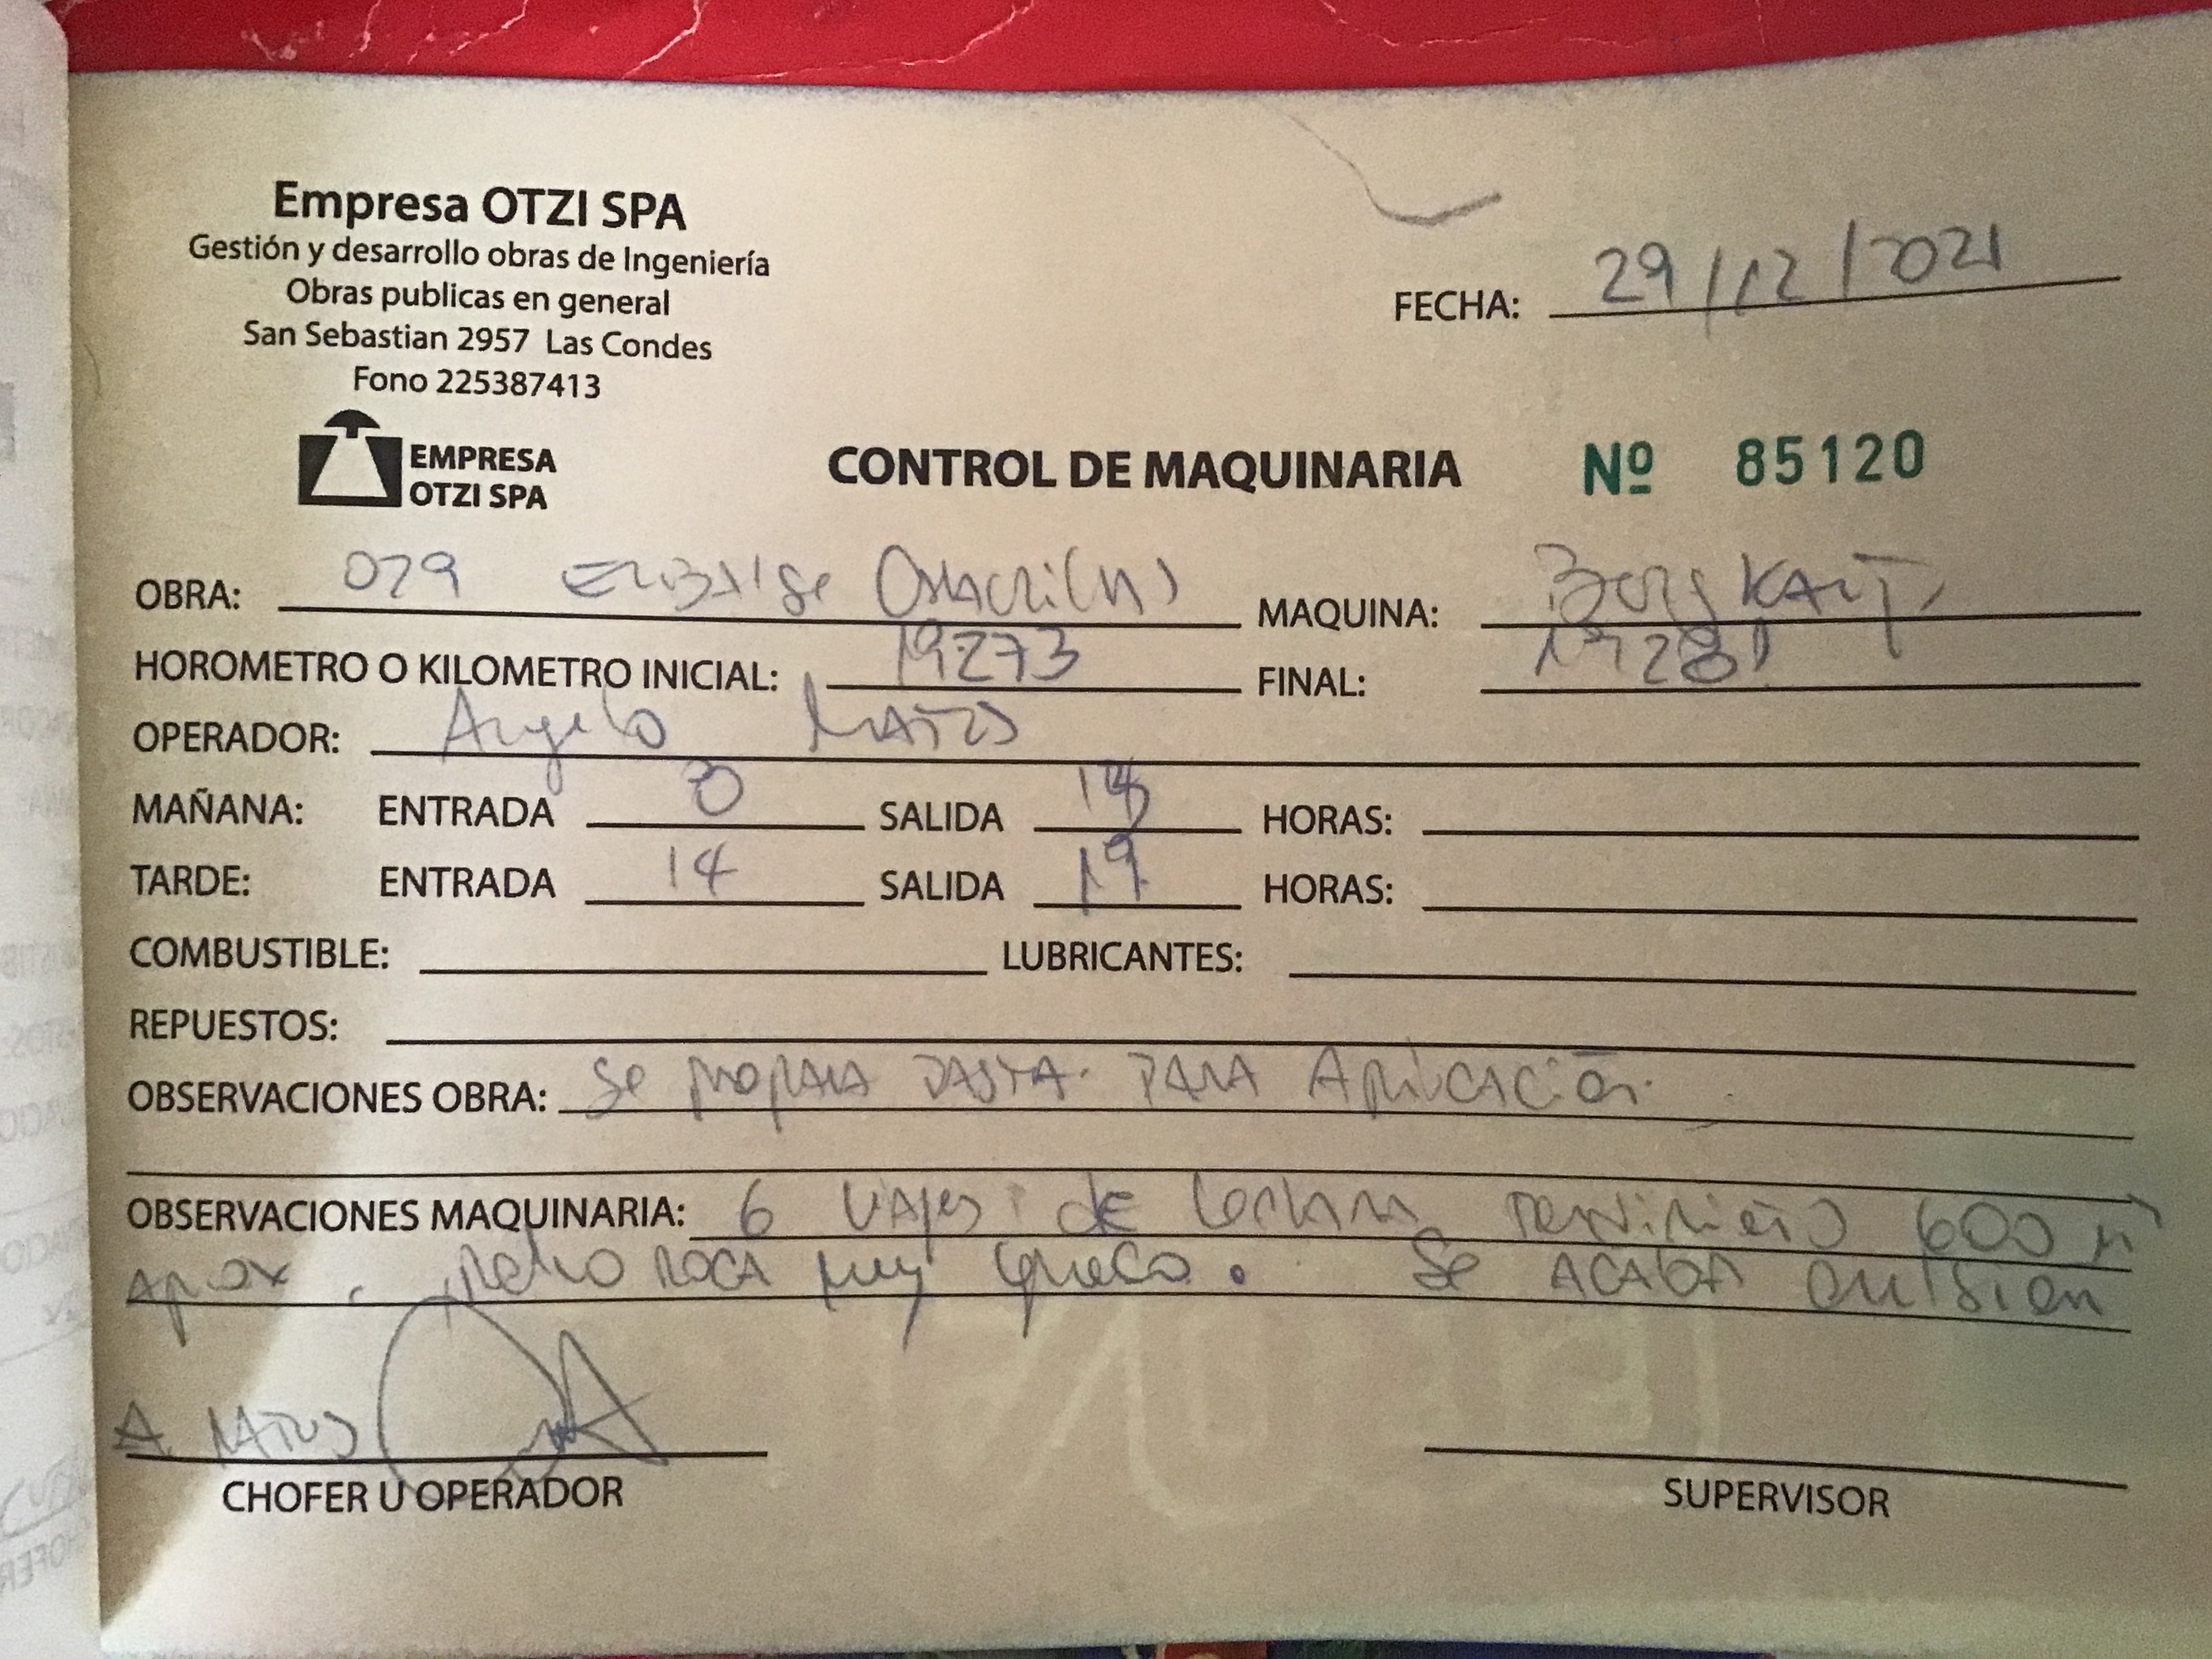 Empresa OTZI SPA
Gestión y desarrollo obras de Ingeniería
Obras publicas en general
San Sebastian 2957 Las Condes
Fono 225387413
FECHA: 29/12/2021
EMPRESA
OTZI SPA
CONTROL DE MAQUINARIA Nº 85120
OBRA: 079 MAQUINA:
HOROMETRO O KILOMETRO INICIAL: 19273 FINAL: 19281
OPERADOR: Angelo Matus
MAÑANA: ENTRADA 8 SALIDA 13 HORAS:
TARDE: ENTRADA 14 SALIDA 19 HORAS:
COMBUSTIBLE: LUBRICANTES:
REPUESTOS:
OBSERVACIONES OBRA: Se prepara pasta para Aplicación.
OBSERVACIONES MAQUINARIA: 6 viajes de 600 m
Aprox. roca muy Se acaba emulsion
A Matus
CHOFER U OPERADOR
SUPERVISOR